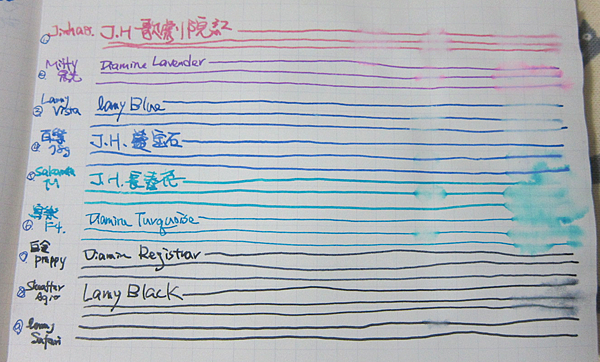 ① Jinhao. J.H 歌劇院紅
② Mitty
Diamine Lavender
Lamy
Vista
lamy Blue
④ 百樂
78g
J.H. 藍宝石
M
J.H. 長春花
⑥ 寫樂
F-4.
Diamine Turquoise
⑦ 白金
preppy
Diamin Registrar
⑧ Sheaffer
Agio
Lamy Black
⑨ lamy
Safari